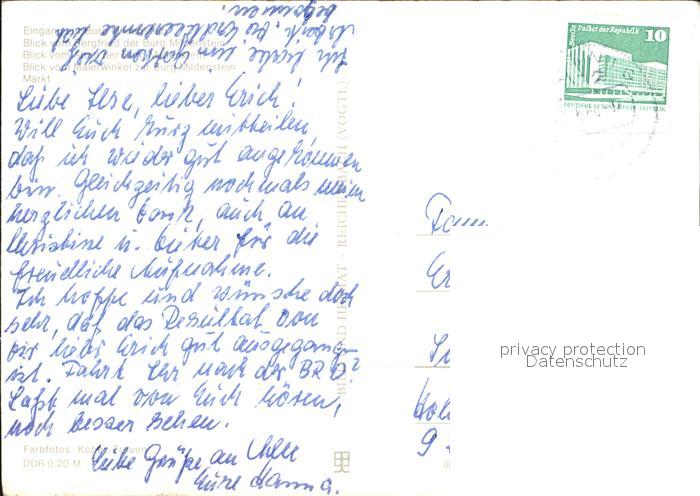 Blick vom Bergfried der Burg Mildenstein
Blick vom Malerwinkel zur Burg Mildenstein
Markt
Liebe Ilse, lieber Erich!
Will Euch kurz mitteilen,
daß ich wieder gut angekommen
bin. Gleichzeitig nochmals meinen
herzlichen Dank, auch an
Christine u. Günter für die
freundliche Aufnahme.
Ich hoffe und wünsche doch
sehr, daß das Resultat von
dir lieber Erich gut ausgegangen
ist. Fahrt Ihr nach der BRD?
Laßt mal von Euch hören,
noch besser sehen.
Liebe Grüße an Alle
Eure Hanna.
Ich habe
begonnen!
Farbfotos: Kober, Treuen
DDR 0.20 M
BILD UND HEIMAT · REICHENBACH (VOGTL)
Berlin Palast der Republik
10
DEUTSCHE DEMOKRATISCHE REPUBLIK
Fam
Er
9
privacy protection
Datenschutz